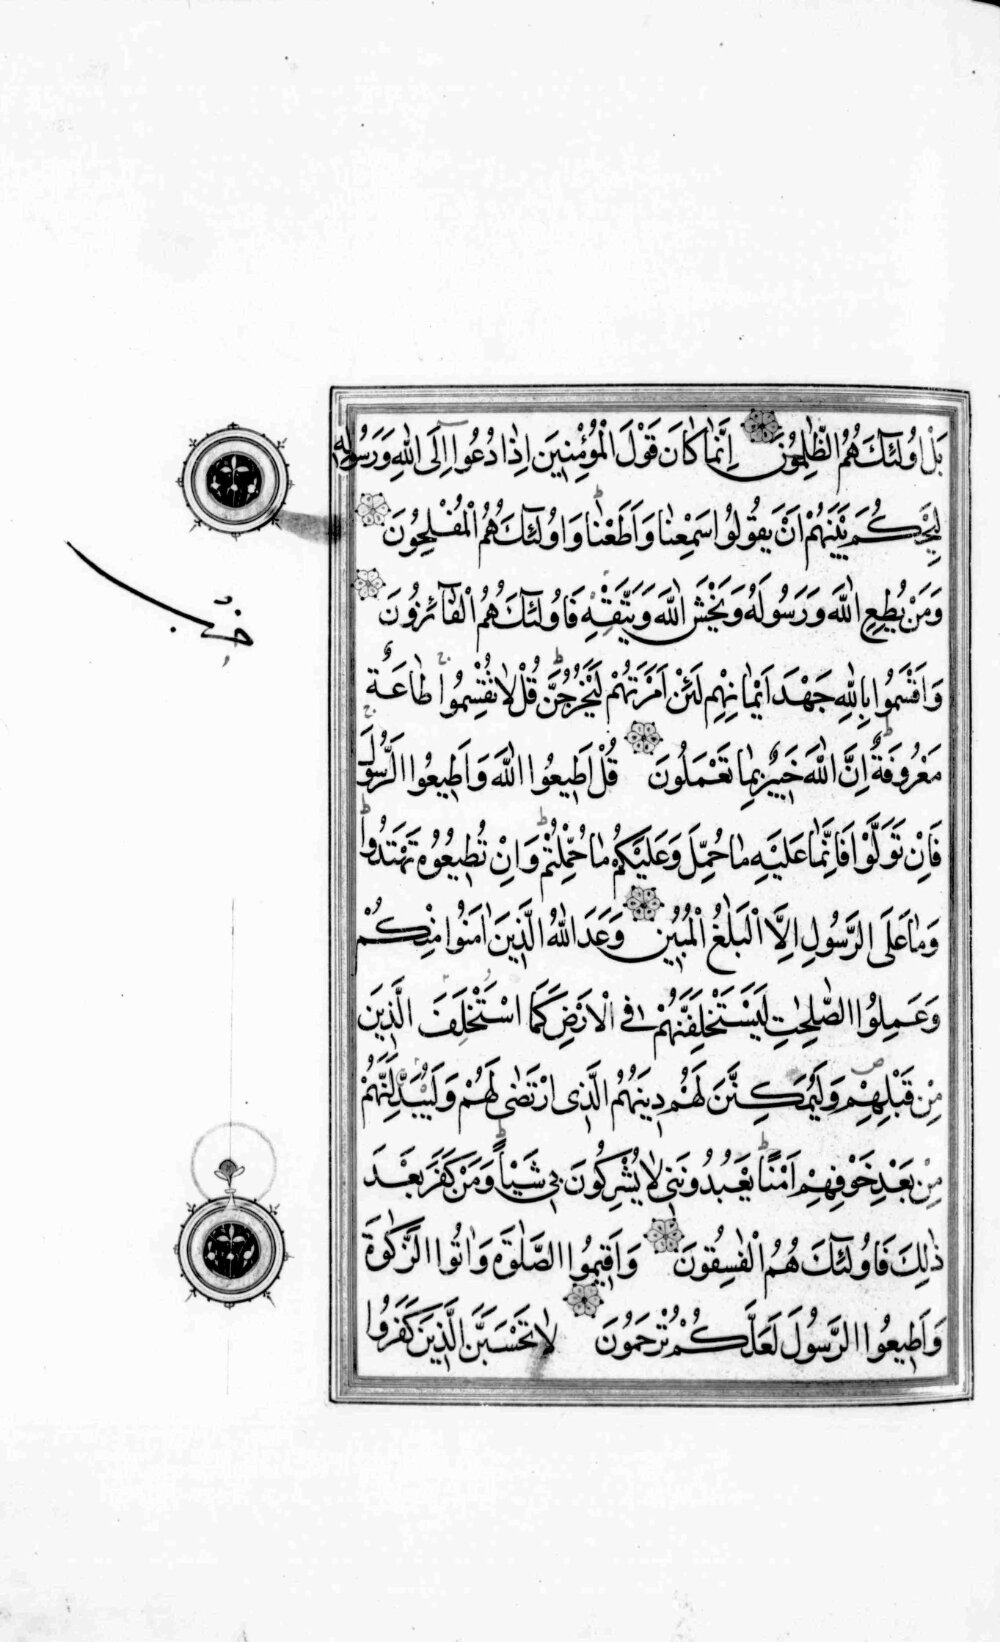 بَلْ اُولٰئِكَ هُمُ الظَّالِمُونَ اِنَّمَا كَانَ قَوْلَ الْمُؤْمِنِينَ اِذَا دُعُوا اِلَى اللّٰهِ وَرَسُولِهِ
لِيَحْكُمَ بَيْنَهُمْ اَنْ يَقُولُوا سَمِعْنَا وَاَطَعْنَا وَاُولٰئِكَ هُمُ الْمُفْلِحُونَ
وَمَنْ يُطِعِ اللّٰهَ وَرَسُولَهُ وَيَخْشَ اللّٰهَ وَيَتَّقْهِ فَاُولٰئِكَ هُمُ الْفَائِزُونَ
وَاَقْسَمُوا بِاللّٰهِ جَهْدَ اَيْمَانِهِمْ لَئِنْ اَمَرْتَهُمْ لَيَخْرُجُنَّ قُلْ لَا تُقْسِمُوا طَاعَةٌ
مَعْرُوفَةٌ اِنَّ اللّٰهَ خَبِيرٌ بِمَا تَعْمَلُونَ قُلْ اَطِيعُوا اللّٰهَ وَاَطِيعُوا الرَّسُولَ
فَاِنْ تَوَلَّوْا فَاِنَّمَا عَلَيْهِ مَا حُمِّلَ وَعَلَيْكُمْ مَا حُمِّلْتُمْ وَاِنْ تُطِيعُوهُ تَهْتَدُوا
وَمَا عَلَى الرَّسُولِ اِلَّا الْبَلٰغُ الْمُبِينُ وَعَدَ اللّٰهُ الَّذِينَ اٰمَنُوا مِنْكُمْ
وَعَمِلُوا الصَّلِحٰتِ لَيَسْتَخْلِفَنَّهُمْ فِى الْاَرْضِ كَمَا اسْتَخْلَفَ الَّذِينَ
مِنْ قَبْلِهِمْ وَلَيُمَكِّنَنَّ لَهُمْ دِينَهُمُ الَّذِى ارْتَضٰى لَهُمْ وَلَيُبَدِّلَنَّهُمْ
مِنْ بَعْدِ خَوْفِهِمْ اَمْنًا يَعْبُدُونَنِى لَا يُشْرِكُونَ بِى شَيْـًٔا وَمَنْ كَفَرَ بَعْدَ
ذٰلِكَ فَاُولٰئِكَ هُمُ الْفٰسِقُونَ وَاَقِيمُوا الصَّلٰوةَ وَاٰتُوا الزَّكٰوةَ
وَاَطِيعُوا الرَّسُولَ لَعَلَّكُمْ تُرْحَمُونَ لَا تَحْسَبَنَّ الَّذِينَ كَفَرُوا
حزب